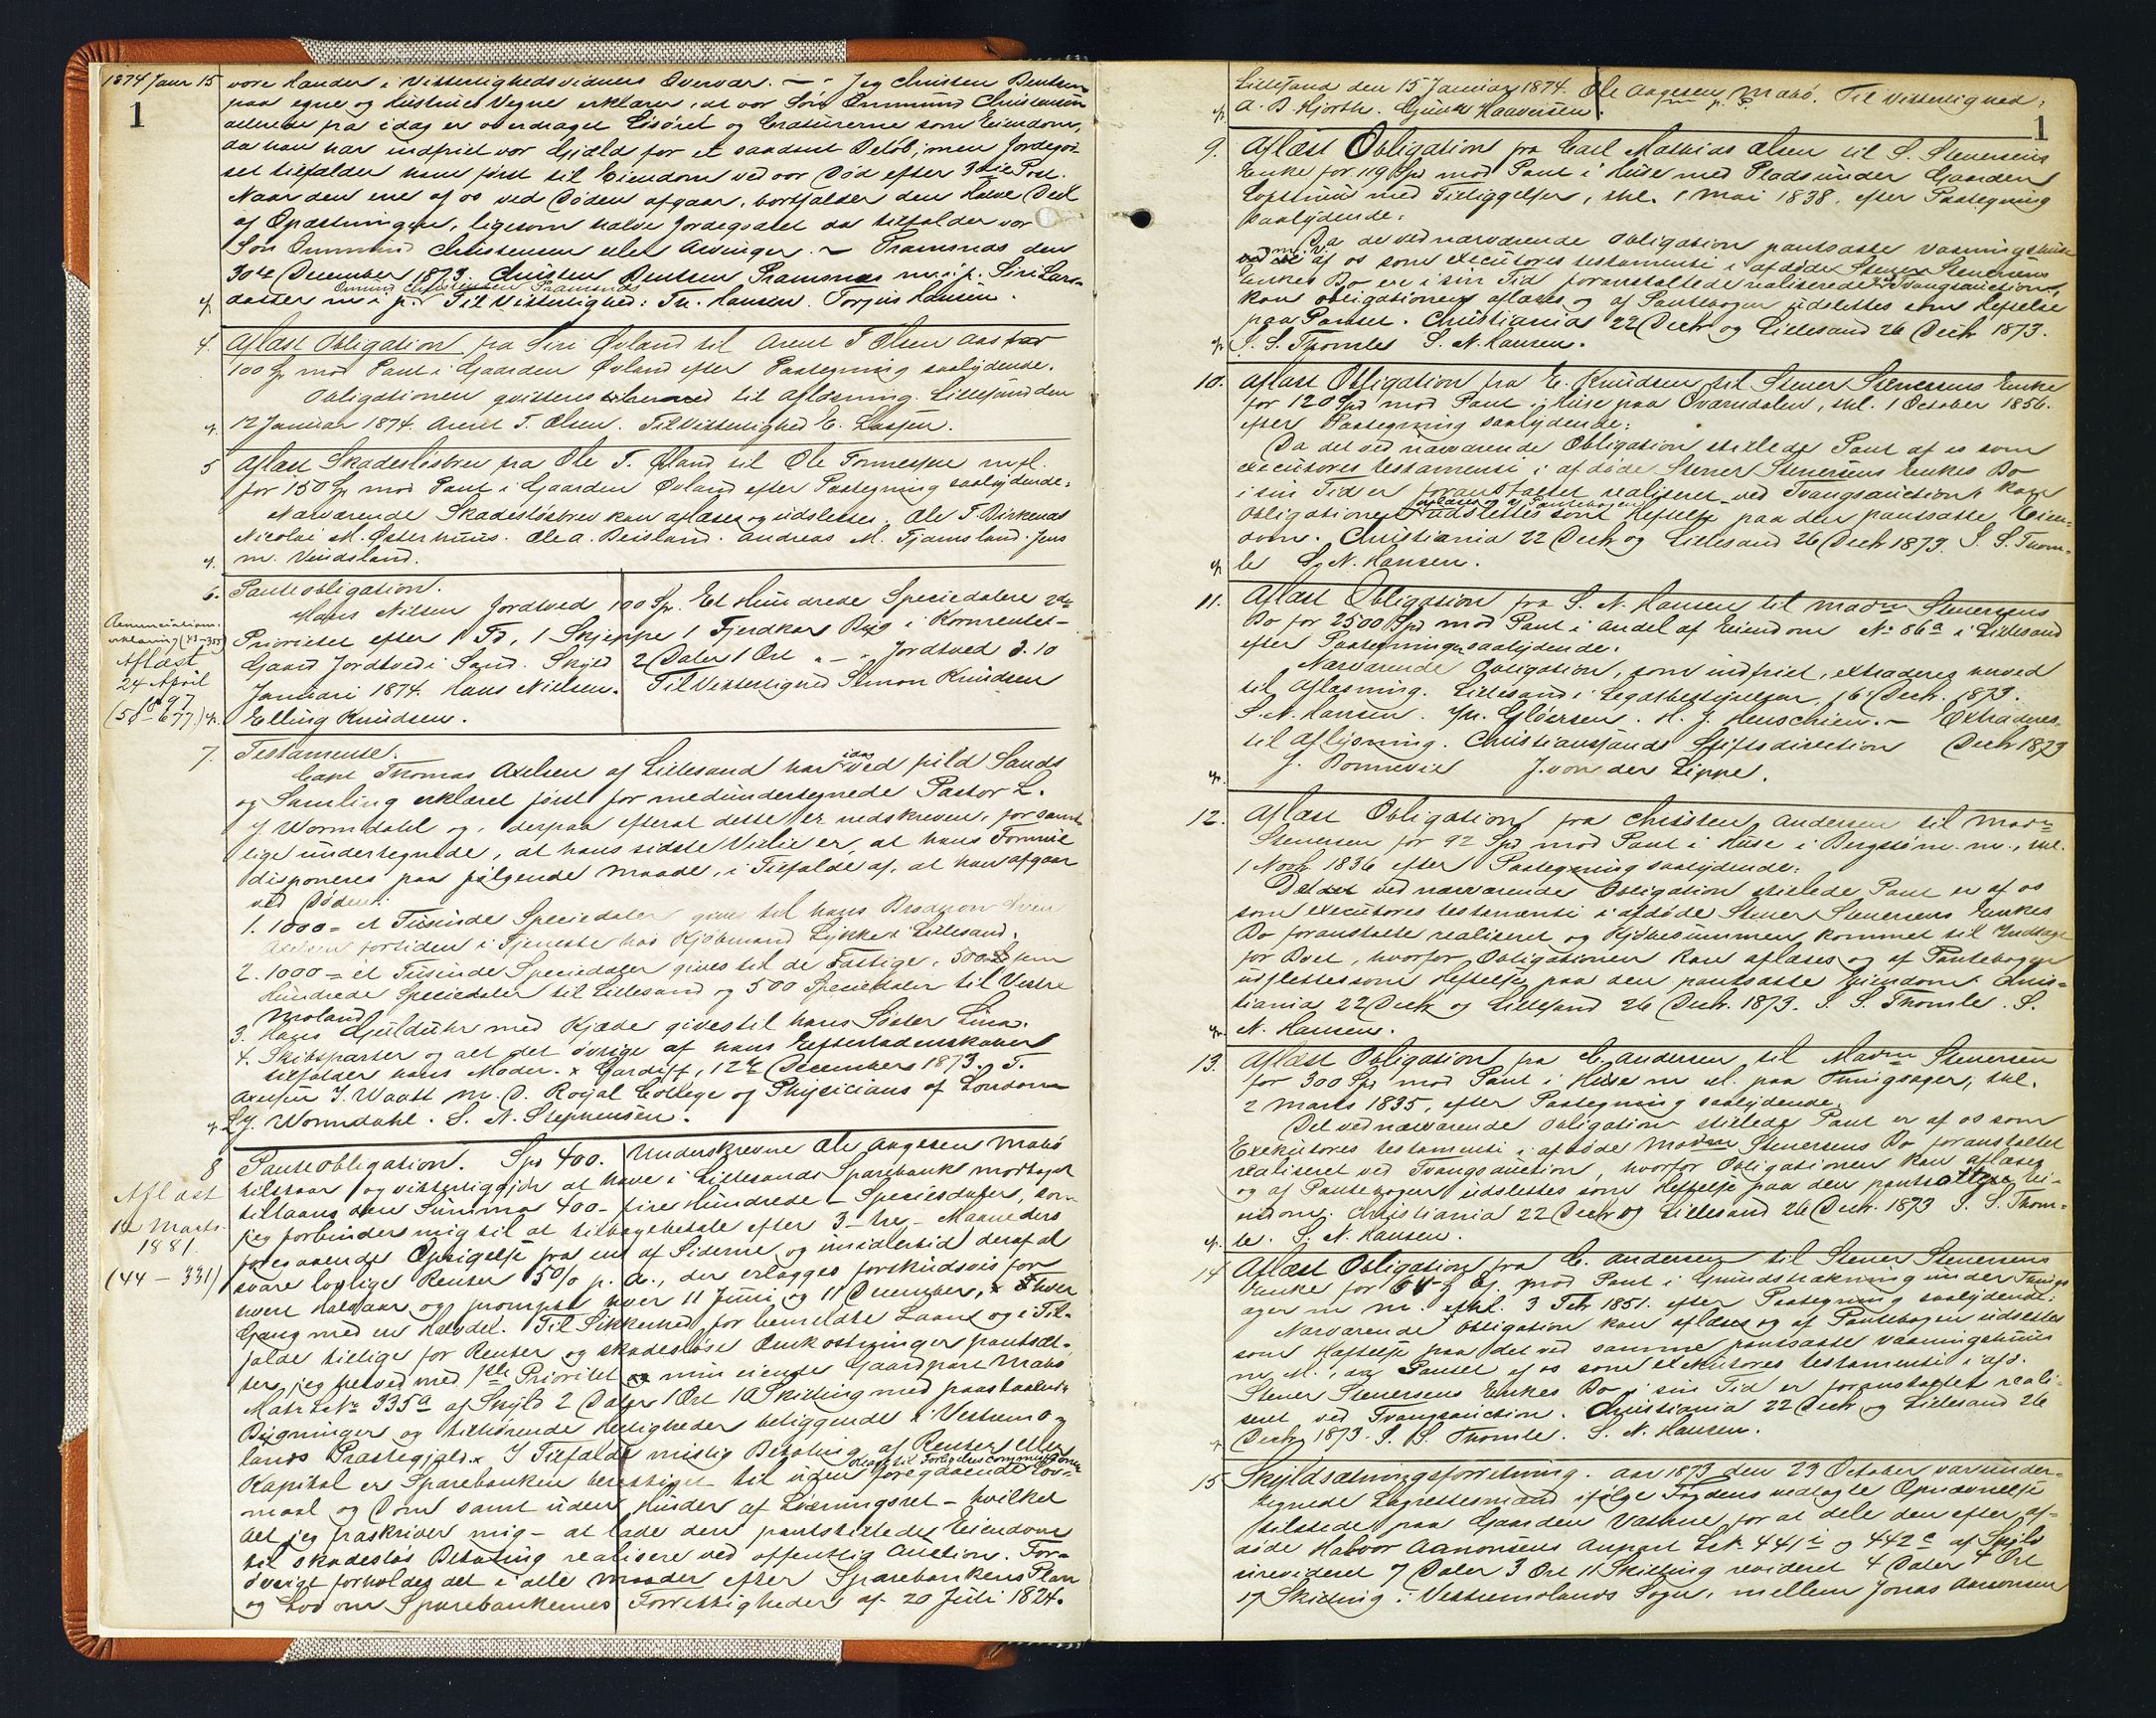 1874 Januar 15 vore Hænder i Vitterlighedsvidners Overvær. — Jeg Christen Bentsen
1
paa egne og Hustrues Vegne erklærer, at vor Søn Ommund Christensen
allerede fra idag er overdraget Løsøret og Creaturerne som Eiendom,
da han har indfriet vor Gjæld for et saadant Beløb, men Jordegod-
set tilfalder ham først til Eiendom ved vor Død efter 3die Post.
Naar den ene af os ved Døden afgaar, bortfalder den halve Deel
af Opfostringen, ligesom halve Jordegodset da tilfalder vor
Søn Ommund Christensen eller Arvinger. — Pramsnæs den
30te December 1873. Christen Bentsen Pramsnæs m. i. p. Siri Lars-
Ommund Christensen Pramsnæs
datter m i p. Til Vitterlighed: Th. Hansen. Torjus Hansen.
4. Aflæst Obligation fra Siri Øvland til Arent T Olsen Aas
100 Sp mod Pant i Gaarden Øvland efter Paategning saalydende.
Obligationen qvitteres til Aflæsning. Lillesand den
12 Januar 1874. Arent T. Olsen. Til Vitterlighed E. Lassen.
5 Aflæst Skadesløsbrev fra Ole T. Øvland til Ole Tonnessen m. fl.
for 150 Sp mod Pant i Gaarden Øvland efter Paategning saalydende:
Nærværende Skadesløsbrev kan aflæses og udslettes. Ole T. Birkenæs
Nicolai M. Østerhuus. Ole A. Beisland. Andreas M. Tjamsland. Jens
M. Vindsland.
6. Panteobligation.
Hans Nilsen Jordtved 100 Sp. Et Hundrede Speciedalere 2den
Prioritet efter 1 Td, 1 Skjeppe 1 Fjerdkar Byg i Kornrentet-
Gaard Jordtved i Sand. Skyld 2 Daler 1 Ort " — " Jordtved d. 10
Januari 1874. Hans Nielsen. Til Vitterlighed Simon Knudsen
Elling Knudsen.
Aflæst
24 April
1897
(50 - 677.)
7. Testamente.
Capt Thomas Axelsen af Lillesand har idag ved fuld Sands
og Samling erklæret først for medundertegnede Pastor L.
J Wormdahl og, derpaa efterat dette er nedskreven, for samt-
lige undertegnede, at hans sidste Villie er, at hans Formue
disponeres paa følgende Maade, i Tilfælde af, at han afgaar
ved Døden:
1. 1000 = et Tusinde Speciedaler gives til hans Broder Sven
Axelsen fortiden i Tjeneste hos Kjøbmand Lykke i Lillesand.
2. 1000 = et Tusinde Speciedaler gives til de Fattige, 500 = fem
Hundrede Speciedaler til Lillesand og 500 Speciedaler til Vestre
Moland
3. Hans Gulduhr med Kjæde gives til hans Søster Lina.
4. Skibsparter og alt det øvrige af hans Efterladenskaber
tilfalder hans Moder. Cardiff, 12te December 1873. T.
Axelsen J. Waatt M. D. Royal College of Physicians of London
L J. Wormdahl. S. N. Stephensen.
8 Panteobligation. Spd 400. Underskrevne Ole Aagesen Mabø
tilstaar og vitterliggjør at have i Lillesands Sparebank modtaget
tillaans den Summa 400 - fire Hundrede - Speciesdaler, som
jeg forbinder mig til at tilbagebetale efter 3 - tre - Maaneders
foregaaende Opsigelse fra en af Siderne og imidlertid deraf at
svare lovlige Renter 5 0/0 p. a., der erlægges forskudsvis for
hvert Halvaar og promptst hver 11 Juni og 11 December, hver
Gang med en Halvdel. Til Sikkerhed for bemeldte Laan og i Til-
fælde tillige for Renter og skadesløse Omkostninger pantsæt-
ter jeg herved med 1ste Prioritet min eiende Gaardpart Mabø
Matr. LNo. 335a af Skyld 2 Daler 1 Ort 10 Skilling med paastaaende
Bygninger og tilhørende Herligheder beliggende i Vestremo-
lands Præstegjæld. I Tilfælde mislig Betaling af Renter eller
Kapital er Sparebanken berettiget til uden foregaaende Lov-
maal og Dom samt uden Hinder af Løsningsret - hvilket
Alt jeg fraskriver mig - at lade den pantstillede Eiendom
til skadesløs Betaling realisere ved offentlig Auction. For-
øvrigt forholdes det i alle Maader efter Sparebankens Plan
og Lov om Sparebankernes Forrettigheder af 20 Juli 1824.
Aflæst
12 Marts
1881.
(44 - 331)
Lillesand den 15 Januar 1874. Ole Aagesen Mabø. Til Vitterlighed:
m. p. P.
A. B Hjorth. Gjeruld Haaversen.
1
9. Aflæst Obligation fra Carl Mathias Olsen til S. Stenersens
Enke for 119 Spd mod Pant i Huse med Plads under Gaarden
Lopthuus med Tilliggelser, thl. 1 Mai 1838. efter Paategning
saalydende:
Da de ved nærværende Obligation pantsatte Vaaningshuse
af os som executores testamenti i afdøde Stener Stenersens
Enkes Bo er i sin Tid foranstaltede realiserede ved Tvangsauction,
kan Obligationen aflæses og af Pantebogen udslettes som Heftelse
paa Pantet. Christiania 22 Decbr og Lillesand 26 Decbr 1873.
S. S. Thomle S. N. Hansen.
10. Aflæst Obligation fra E. Knudsen til Stener Stenersens Enke
for 120 Spd mod Pant i Huse paa Øvarsdalen, thl. 1 October 1856.
efter Paategning saalydende:
Da det ved nærværende Obligation stillede Pant af os som
executores testamenti i afdøde Stener Stenersens Enkes Bo
i sin Tid er foranstaltet realiseret ved Tvangsauction, kan
aflæses og af Pantebogen
Obligationen udslettes som Heftelse paa den pantsatte Eien-
dom. Christiania 22 Decbr og Lillesand 26 Decbr 1873. S. S. Thom-
le S. N. Hansen.
11. Aflæst Obligation fra S. N. Hansen til Madm Stenersens
Bo for 2500 Spd mod Pant i Andel af Eiendom No 86a i Lillesand
efter Paategninger saalydende:
Nærværende Obligation, som indfriet, extraderes herved
til Aflæsning. Lillesand i Legatbestyrelsen, 16 Decbr. 1873.
S. N. Hansen. Jn. Gløersen. H. J. Henschien. — Extraderes
til Aflysning. Christianssands Stiftsdirection Decbr 1873
J. Bonnevie J. von der Lippe.
12. Aflæst Obligation fra Christen Andersen til Madm
Stenersen for 92 Spd mod Pant i Huse i Bergstøm. m., thl.
1 Novb. 1836 efter Paategning saalydende:
Det ved nærværende Obligation stillede Pant er af os
som executores testamenti i afdøde Stener Stenersens Enkes
Bo foranstaltet realiseret og Kjøbesummen kommet til Indtægt
for Boet, hvorfor Obligationen kan aflæses og af Pantebogen
udslettes som Heftelse paa den pantsatte Eiendom. Chris-
tiania 22 Decbr og Lillesand 26 Decbr. 1873. S. S. Thomle. S.
N. Hansen.
13. Aflæst Obligation fra C. Andersen til Madm Stenersen
for 300 Spd mod Pant i Huse m. M. paa Tingsager, thl.
2 Marts 1835, efter Paategning saalydende.
Det ved nærværende Obligation stillede Pant er af os som
Exekutores testamenti i afdøde Madam Stenersens Bo foranstaltet
realiseret ved Tvangsauction, hvorfor Obligationen kan aflæses
og af Pantebogen udslettes som Heftelse paa den pantsatte Ei-
endom. Christiania 22 Decbr og Lillesand 26 Decbr. 1873 S. S. Thom-
le. S. N. Hansen.
14 Aflæst Obligation fra C. Andersen til Stener Stenersens
Enke for mod Pant i Grundstrækning under Tings
ager m m. thl. 3 Febr 1851. efter Paategning saalydende:
Nærværende Obligation kan aflæses og af Pantebogen udslettes
som Heftelse paa det ved samme pantsatte Vaaningshuus
m. M., da Pantet af os som Exekutores testamenti i afd.
Stener Stenersens Enkes Bo i sin Tid er foranstaltet reali-
seret ved Tvangsauction. Christiania 22 Decbr og Lillesand 26
Decbr 1873. S. S. Thomle. S. N. Hansen.
15 Skyldsætningsforretning. Aar 1873 den 23 October var under-
tegnede Lagrettesmænd ifølge Fogdens vedlagte Opnævnelse
tilstede paa Gaarden Væthne for at dele den efter af-
døde Halvor Aanonsens Anpart LNr. 441i og 442c af Skyld
urevideret 7 Daler 3 Ort 11 Skilling revideret 4 Daler 4 Ort
17 Skilling i Vestremolands Sogn, mellem Jonas Aanonsen